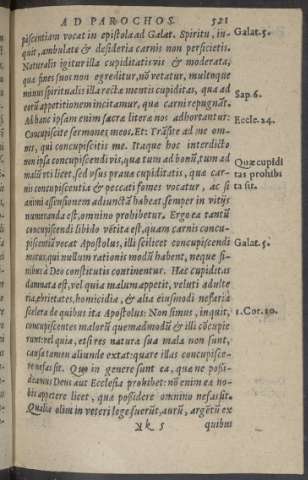 AD PAROCHOS. 521
piscentiam vocat in epistola ad Galat. Spiritu, in- Galat. 5.
quit, ambulate & desideria carnis non perficietis.
Naturalis igitur illa cupiditatis vis & moderata,
quæ fines suos non egreditur, nõ vetatur, multoque
minus spiritualis illa rectæ mentis cupiditas, qua ad
eorũ appetitionem incitamur, quæ carni repugnãt. Sap. 6.
Ad hanc ipsam enim sacræ literæ nos adhortantur:
Concupiscite sermones meos. Et: Trãsite ad me om- Eccle. 24.
nes, qui concupiscitis me. Itaque hoc interdicto
non ipsa concupiscendi vis, qua tum ad bonũ, tum ad Quæ cupidi
malũ vti licet, sed vsus prauæ cupiditatis, quæ car- tas prohibi
nis concupiscentia & peccati fomes vocatur, ac si ta sit.
animi assensionem adiunctã habeat, semper in vitijs
numeranda est, omnino prohibetur. Ergo ea tantũ
concupiscendi libido vetita est, quam carnis concu-
piscentiã vocat Apostolus, illi scilicet concupiscendi Galat. 5.
motus, qui nullum rationis modũ habent, neque fi-
nibus à Deo constitutis continentur. Hæc cupiditas
damnata est, vel quia malum appetit, veluti adulte
ria, ebrietates, homicidia, & alia eiusmodi nefaria
scelera de quibus ita Apostolus: Non simus, inquit, 1. Cor. 10.
concupiscentes malorũ quemadmodũ & illi cõcupie
runt: vel quia, etsi res natura sua mala non sunt,
causa tamen aliunde extat: quare illas concupisce-
re nefas sit. Quo in genere sunt ea, quæ ne possi-
deamus Deus aut Ecclesia prohibet: nõ enim ea no-
bis appetere licet, quæ possidere omnino nefas sit.
Qualia olim in veteri lege fuerũt, aurũ, argẽtũ ex
Kk 5 quibus